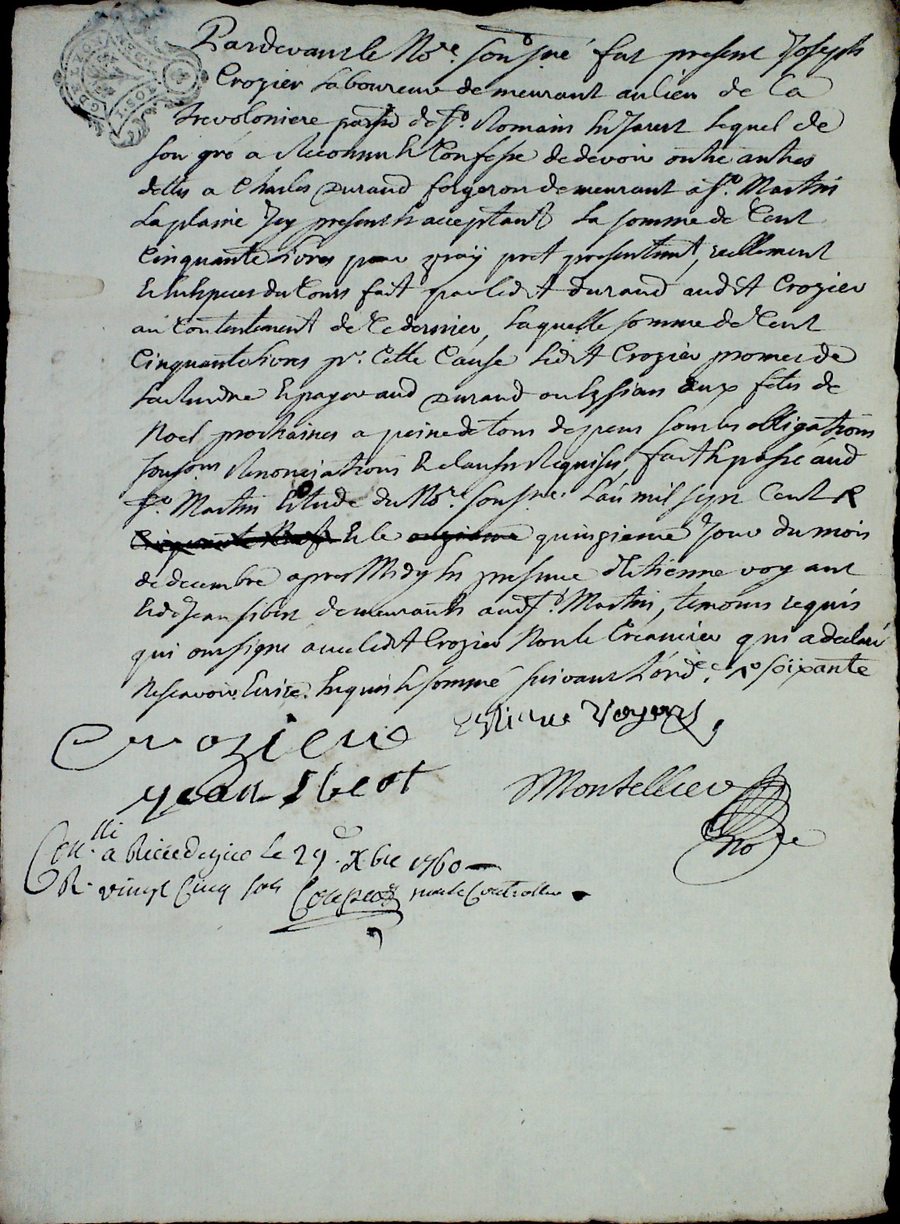 Pardevant le No.re Sousne fut present Joseph
Crozier Laboureur demeurant au lieu de la
paroisse de St. Romain En Jarest Lequel de
son gré a Reconnu Et Confessé de devoir outre autres
dettes a Charles Durand forgeron demeurant a St. Martin
Laplaine Icy present Et acceptant La somme de Cent
Cinquante Livres pour vray pret presentemt, reellement
Et En Especes du Cours fait par Ledit Durand audit Crozier
au Contentement de Ce dernier, Laquelle somme de Cent
Cinquante Livres pr. Cette Cause Ledit Crozier promet de
Rendre Et payer aud Durand ou Es siens aux fetes de
Noel prochaines a peine de tous depens sous les obligations
soumons Renonciations Et clauses Requises, fait Et passé aud
St. Martin Etude du No.re sousne. L'an mil sept Cent
Et le quinzieme Jour du mois
de decembre apres Midy En presence d'Etienne voyant
Et de Jean sibert demeurants aud St. Martin, temoins requis
qui ont signe avec Ledit Crozier Non le Creancier qui a declaré
Ne scavoir Ecrire. Enquis Et sommé suivant L'ord.e soixante
Crozier
Jean Sibeot
Montellier
No.re
Con.lli a Rivedegier Le 29. Xbre 1760
R. vingt Cinq sols